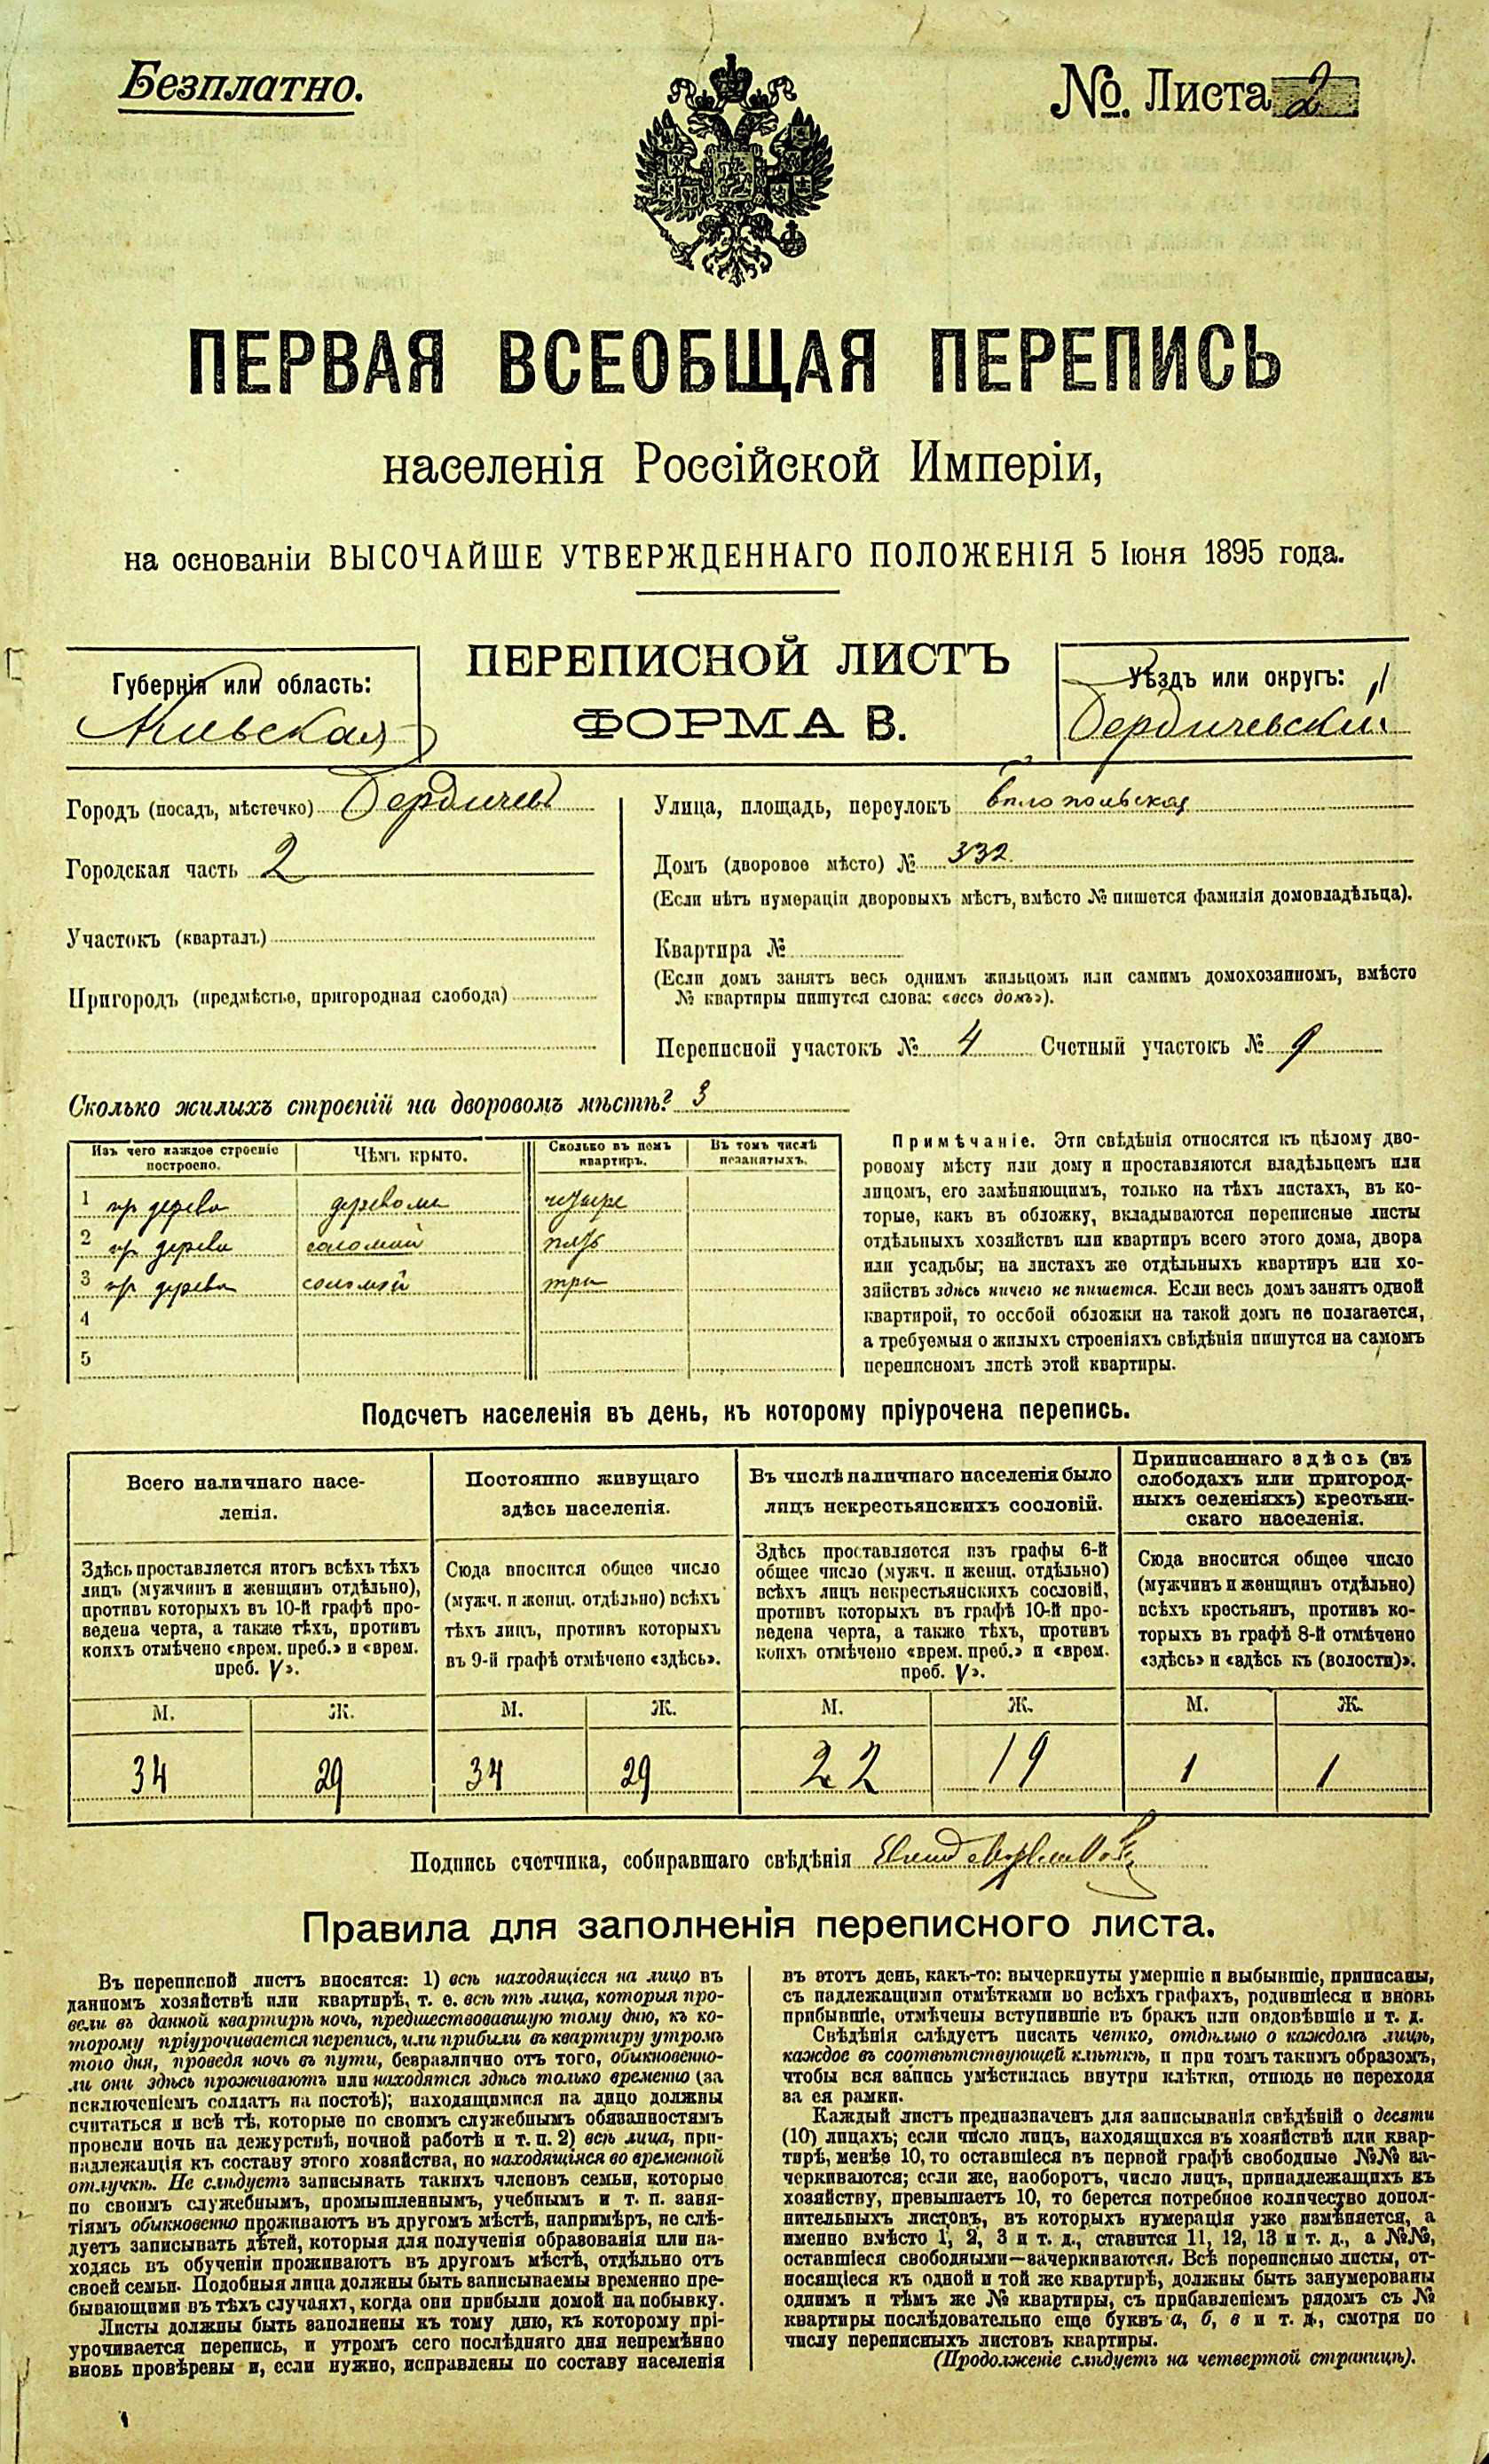 Безплатно.
№. Листа 2
ПЕРВАЯ ВСЕОБЩАЯ ПЕРЕПИСЬ
населенія Россійской Имперіи,
на основаніи ВЫСОЧАЙШЕ УТВЕРЖДЕННАГО ПОЛОЖЕНІЯ 5 Іюня 1895 года.
Губернія или область:
Кіевская
ПЕРЕПИСНОЙ ЛИСТЪ
ФОРМА В.
Уѣздъ или округъ:
Бердичевскій
Городъ (посадъ, мѣстечко) Бердичевъ
Городская часть 2
Участокъ (кварталъ)
Пригородъ (предмѣстье, пригородная слобода)
Улица, площадь, переулокъ Бѣлопольская
Домъ (дворовое мѣсто) № 332
(Если нѣтъ нумераціи дворовыхъ мѣстъ, вмѣсто № пишется фамилія домовладѣльца).
Квартира №
(Если домъ занятъ весь однимъ жильцомъ или самимъ домохозяиномъ, вмѣсто
№ квартиры пишутся слова: «весь домъ»).
Переписной участокъ № 4 Счетный участокъ № 9
Сколько жилыхъ строеній на дворовомъ мѣстѣ? 3
Изъ чего каждое строеніе
построено.
Чѣмъ крыто.
Сколько въ немъ
квартиръ.
Въ томъ числѣ
незанятыхъ.
1 дерева деревомъ четыре
2 дерева соломой пять
3 дерева соломой три
4
5
Примѣчаніе. Эти свѣдѣнія относятся къ цѣлому дво-
ровому мѣсту или дому и проставляются владѣльцемъ или
лицомъ, его замѣняющимъ, только на тѣхъ листахъ, въ ко-
торые, какъ въ обложку, вкладываются переписные листы
отдѣльныхъ хозяйствъ или квартиръ всего этого дома, двора
или усадьбы; на листахъ же отдѣльныхъ квартиръ или хо-
зяйствъ здѣсь ничего не пишется. Если весь домъ занятъ одной
квартирой, то особой обложки на такой домъ не полагается,
а требуемыя о жилыхъ строеніяхъ свѣдѣнія пишутся на самомъ
переписномъ листѣ этой квартиры.
Подсчетъ населенія въ день, къ которому пріурочена перепись.
Всего наличнаго насе-
ленія.
Постоянно живущаго
здѣсь населенія.
Въ числѣ наличнаго населенія было
лицъ некрестьянскихъ сословій.
Приписаннаго здѣсь (въ
слободахъ или пригород-
ныхъ селеніяхъ) крестьян-
скаго населенія.
Здѣсь проставляется итогъ всѣхъ тѣхъ
лицъ (мужчинъ и женщинъ отдѣльно),
противъ которыхъ въ 10-й графѣ про-
ведена черта, а также тѣхъ, противъ
коихъ отмѣчено «врем. преб.» и «врем.
преб. V».
Сюда вносится общее число
(мужч. и женщ. отдѣльно) всѣхъ
тѣхъ лицъ, противъ которыхъ
въ 9-й графѣ отмѣчено «здѣсь».
Здѣсь проставляется изъ графы 6-й
общее число (мужч. и женщ. отдѣльно)
всѣхъ лицъ некрестьянскихъ сословій,
противъ которыхъ въ графѣ 10-й про-
ведена черта, а также тѣхъ, противъ
коихъ отмѣчено «врем. преб.» и «врем.
преб. V».
Сюда вносится общее число
(мужчинъ и женщинъ отдѣльно)
всѣхъ крестьянъ, противъ ко-
торыхъ въ графѣ 8-й отмѣчено
«здѣсь» и «здѣсь къ (волости)».
М. Ж. М. Ж. М. Ж. М. Ж.
34 29 34 29 22 19 1 1
Подпись счетчика, собиравшаго свѣдѣнія
Правила для заполненія переписного листа.
Въ переписной листъ вносятся: 1) всѣ находящіеся на лицо въ
данномъ хозяйствѣ или квартирѣ, т. е. всѣ тѣ лица, которыя про-
вели въ данной квартирѣ ночь, предшествовавшую тому дню, къ ко-
торому пріурочивается перепись, или прибыли въ квартиру утромъ
того дня, проведя ночь въ пути, безразлично отъ того, обыкновенно-
ли они здѣсь проживаютъ или находятся здѣсь только временно (за
исключеніемъ солдатъ на постоѣ); находящимися на лицо должны
считаться и всѣ тѣ, которые по своимъ служебнымъ обязанностямъ
провели ночь на дежурствѣ, ночной работѣ и т. п. 2) всѣ лица, при-
надлежащія къ составу этого хозяйства, но находящіяся во временной
отлучкѣ. Не слѣдуетъ записывать такихъ членовъ семьи, которые
по своимъ служебнымъ, промышленнымъ, учебнымъ и т. п. заня-
тіямъ обыкновенно проживаютъ въ другомъ мѣстѣ, напримѣръ, не слѣ-
дуетъ записывать дѣтей, которыя для полученія образованія или на-
ходясь въ обученіи проживаютъ въ другомъ мѣстѣ, отдѣльно отъ
своей семьи. Подобныя лица должны быть записываемы временно пре-
бывающими въ тѣхъ случаяхъ, когда они прибыли домой на побывку.
Листы должны быть заполнены къ тому дню, къ которому прі-
урочивается перепись, и утромъ сего послѣдняго дня непремѣнно
вновь провѣрены и, если нужно, исправлены по составу населенія
въ этотъ день, какъ-то: вычеркнуты умершіе и выбывшіе, приписаны,
съ надлежащими отмѣтками во всѣхъ графахъ, родившіеся и вновь
прибывшіе, отмѣчены вступившіе въ бракъ или овдовѣвшіе и т. д.
Свѣдѣнія слѣдуетъ писать четко, отдѣльно о каждомъ лицѣ,
каждое въ соотвѣтствующей клѣткѣ, и при томъ такимъ образомъ,
чтобы вся запись умѣстилась внутри клѣтки, отнюдь не переходя
за ея рамки.
Каждый листъ предназначенъ для записыванія свѣдѣній о десяти
(10) лицахъ; если число лицъ, находящихся въ хозяйствѣ или квар-
тирѣ, менѣе 10, то оставшіеся въ первой графѣ свободные №№ за-
черкиваются; если же, наоборотъ, число лицъ, принадлежащихъ къ
хозяйству, превышаетъ 10, то берется потребное количество допол-
нительныхъ листовъ, въ которыхъ нумерація уже измѣняется, а
именно вмѣсто 1, 2, 3 и т. д., ставится 11, 12, 13 и т. д., а №№,
оставшіеся свободными—зачеркиваются. Всѣ переписные листы, от-
носящіеся къ одной и той же квартирѣ, должны быть занумерованы
однимъ и тѣмъ же № квартиры, съ прибавленіемъ рядомъ съ №
квартиры послѣдовательно еще буквъ а, б, в и т. д., смотря по
числу переписныхъ листовъ квартиры.
(Продолженіе слѣдуетъ на четвертой страницѣ).